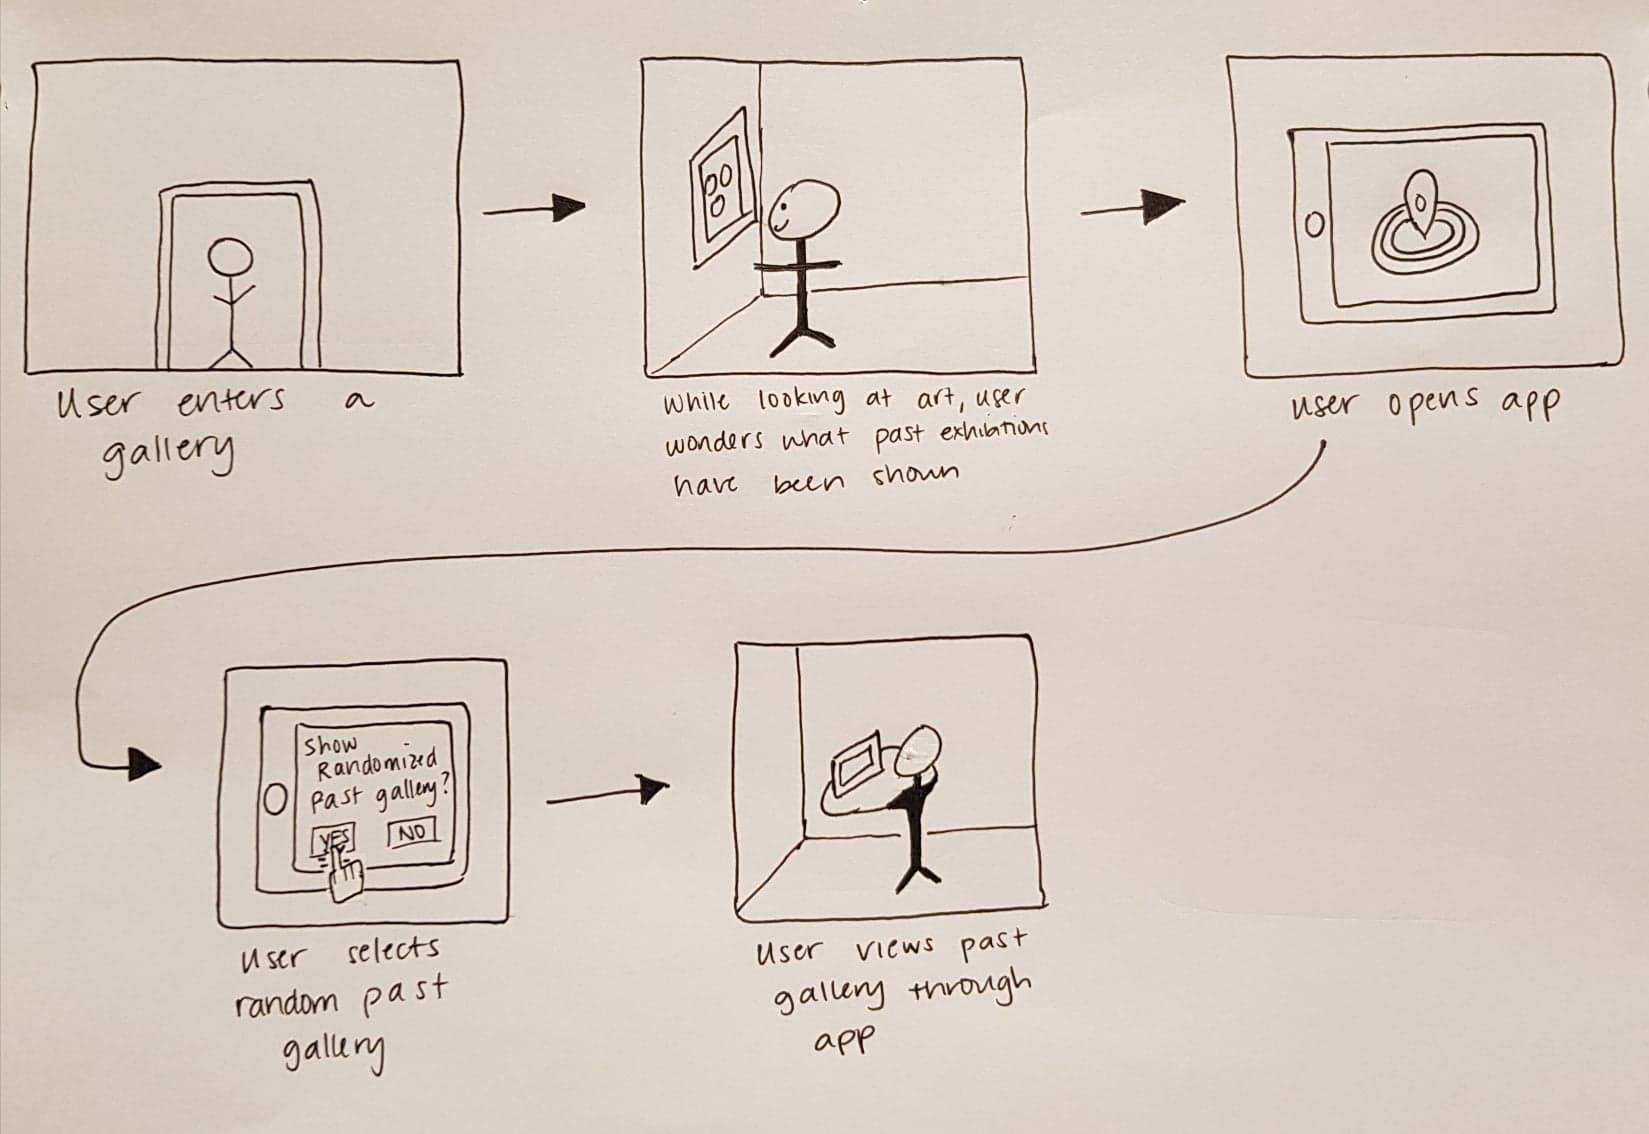 User enters a
gallery
While looking at art, user
wonders what past exhibitions
have been shown
user opens app
Show
Randomized
Past gallery?
YES
NO
User selects
random past
gallery
User views past
gallery through
app